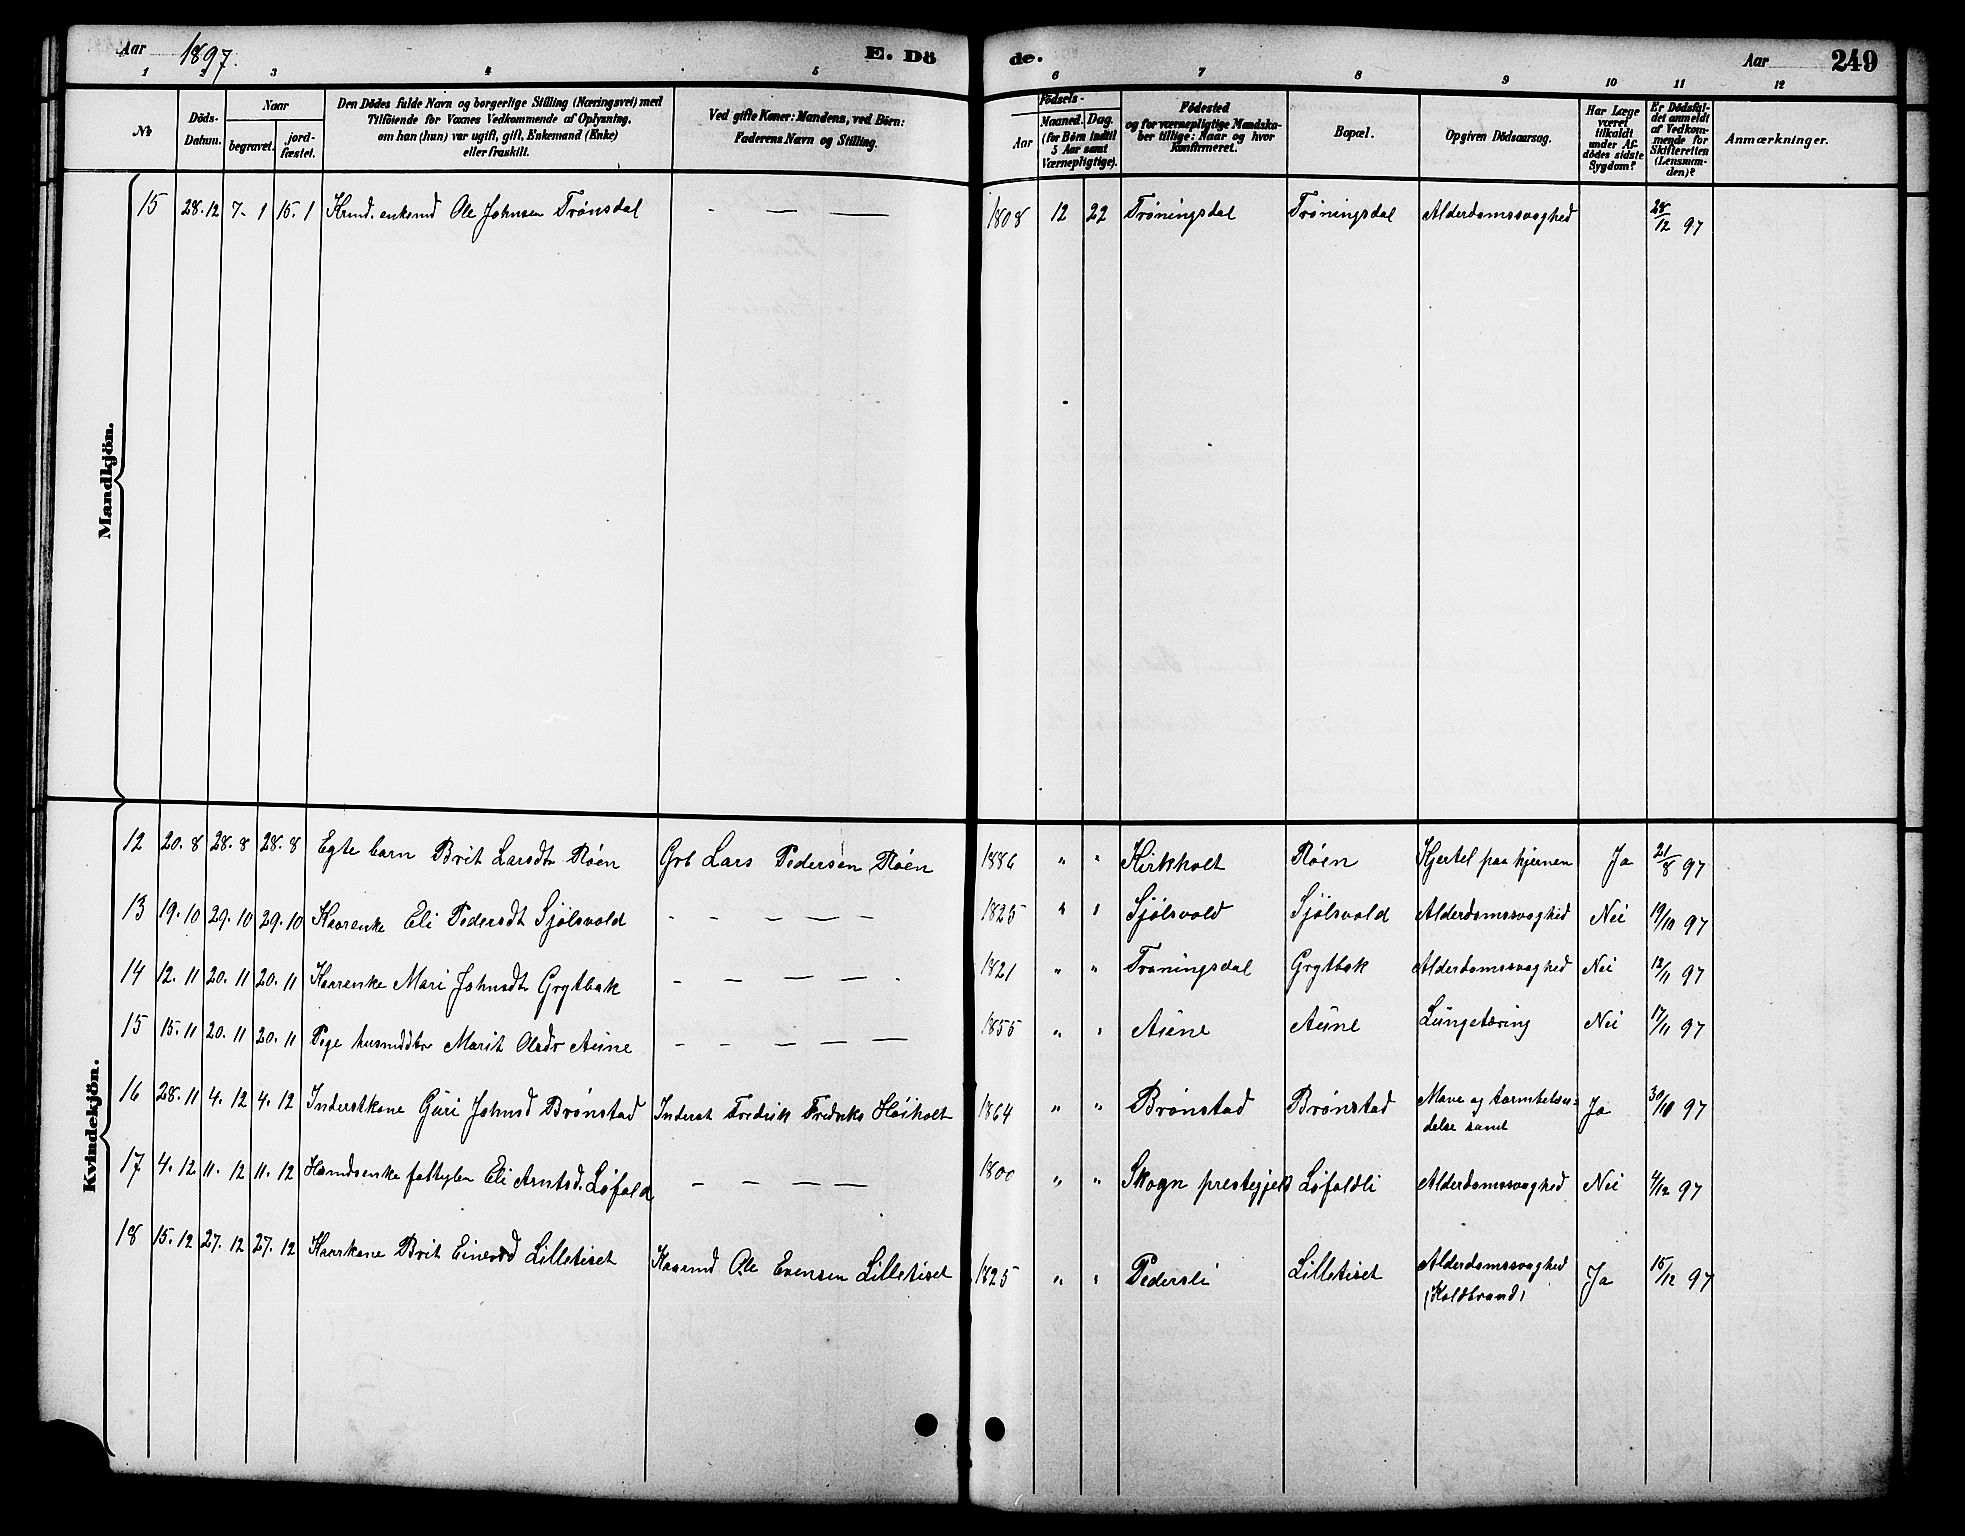 Aar 1897. E. Dö de. Aar 249
1 2 3 4 5 6 7 8 9 10 11 12
No
Döds-Datum.
Naar
begravet.
jord-fæstet.
Den Dödes fulde Navn og borgerlige Stilling (Næringsvei) med
Tilföiende for Voxnes Vedkommende af Oplysning,
om han (hun) var ugift, gift, Enkemand (Enke)
eller fraskilt.
Ved gifte Koner: Mandens, ved Börn:
Faderens Navn og Stilling.
Födsels-
Aar
Maaned. Dag.
(for Börn indtil
5 Aar samt
Værnepligtige).
Födested
og for værnepligtige Mandska-
ber tillige: Naar og hvor
Konfirmeret.
Bopæl.
Opgiven Dödsaarsag.
Har Læge
været
tilkaldt
under Af-
dödes sidste
Sygdom?
Er Dödsfal-
det anmeldt
af Vedkom-
mende for
Skifteretten
(Lensman-
den)?
Anmærkninger.
Mandkjön.
15 28.12 7-1 15.1 Ole Johnsen Trønsdal - — — 1808 12 22 Trøningsdal Trøningsdal Alderdomssvaghed 28/12 97
Kvindekjön.
12 20.8 28.8 28.8 Egte barn Brit Larsdtr Røen Grb Lars Pedersen Røen 1886 " " Kirkholt Røen Kjertel paa hjernen Ja 21/8 97
13 19.10 29.10 29.10 Kaarenke Eli Pedersdt Sjølsvold - - — — — 1825 " " Sjølsvold Sjølsvold Alderdomssvaghed Nei 19/10 97
14 12.11 20.11 20.11 Kaarenke Mari Johnsdt Grytbak - — — — - 1821 " " Trøningsdal Grytbak Alderdomssvaghed Nei 12/11 97
15 15.11 20.11 20.11 Pige husmddtr Marit Olsdr Aune — — — — — 1855 " " Aune Aune Lungetæring Nei 17/11 97
16 28.11 4.12 4.12 Inderstkone Guri Johnsd Brønstad Inderst Fredrik Fredriks Høiholt 1864 " " Brønstad Brønstad Mave og
Ja 30/10 97
17 4.12 11.12 11.12 Eli Arntsd. Løfald — — — — 1800 " " Skogn prestegjeld Løfaldli Alderdomssvaghed Nei 4/12 97
18 15.12 27.12 27.12 Kaarkone Brit Einersd Lilletiset Kaarmd Ole Evensen Lilletiset 1825 " " Pedersli Lilletiset Alderdomssvaghed
(Koldbrand) Ja 15/12 97